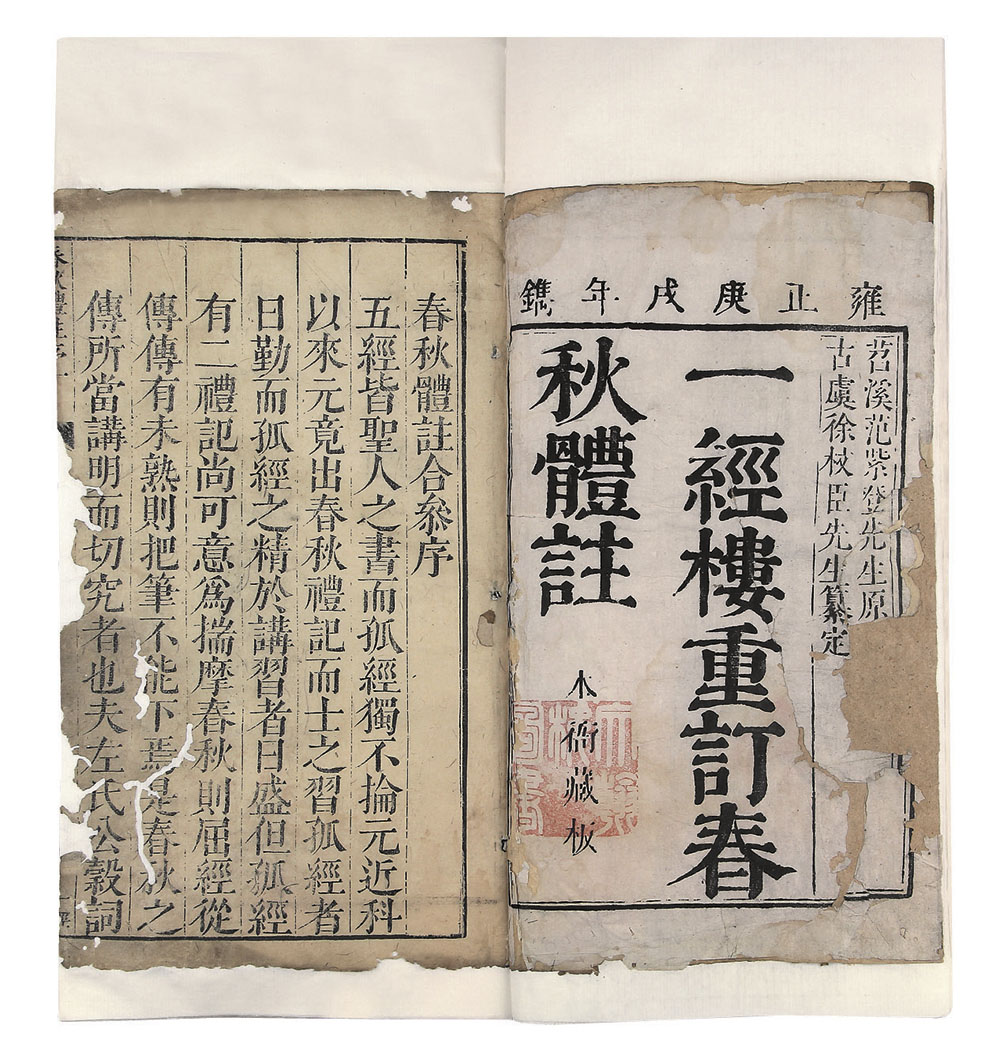 雍正庚戌年鐫
苕溪范紫登先生原
古虞徐杖臣先生纂定
一經樓重訂春
秋體註
本衙藏板
春秋體註合叅序
五經皆聖人之書而孤經獨不掄元近科
以來元竟出春秋禮記而士之習孤經者
日勤而孤經之精於講習者日盛但孤經
有二禮記尚可意爲揣摩春秋則屈經從
傳傳有未熟則把筆不能下焉是春秋之
傳所當講明而切究者也夫左氏公穀詞
春秋體註序